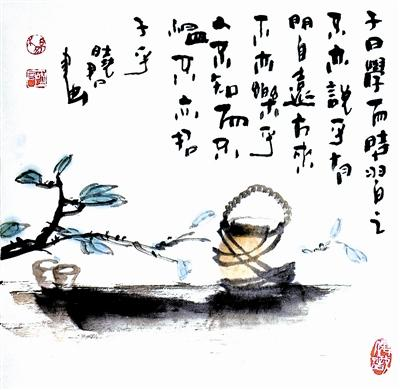 子曰學而時習之
不亦說乎有
朋自遠方來
不亦樂乎
人不知而不
慍不亦君
子乎
曉
畫